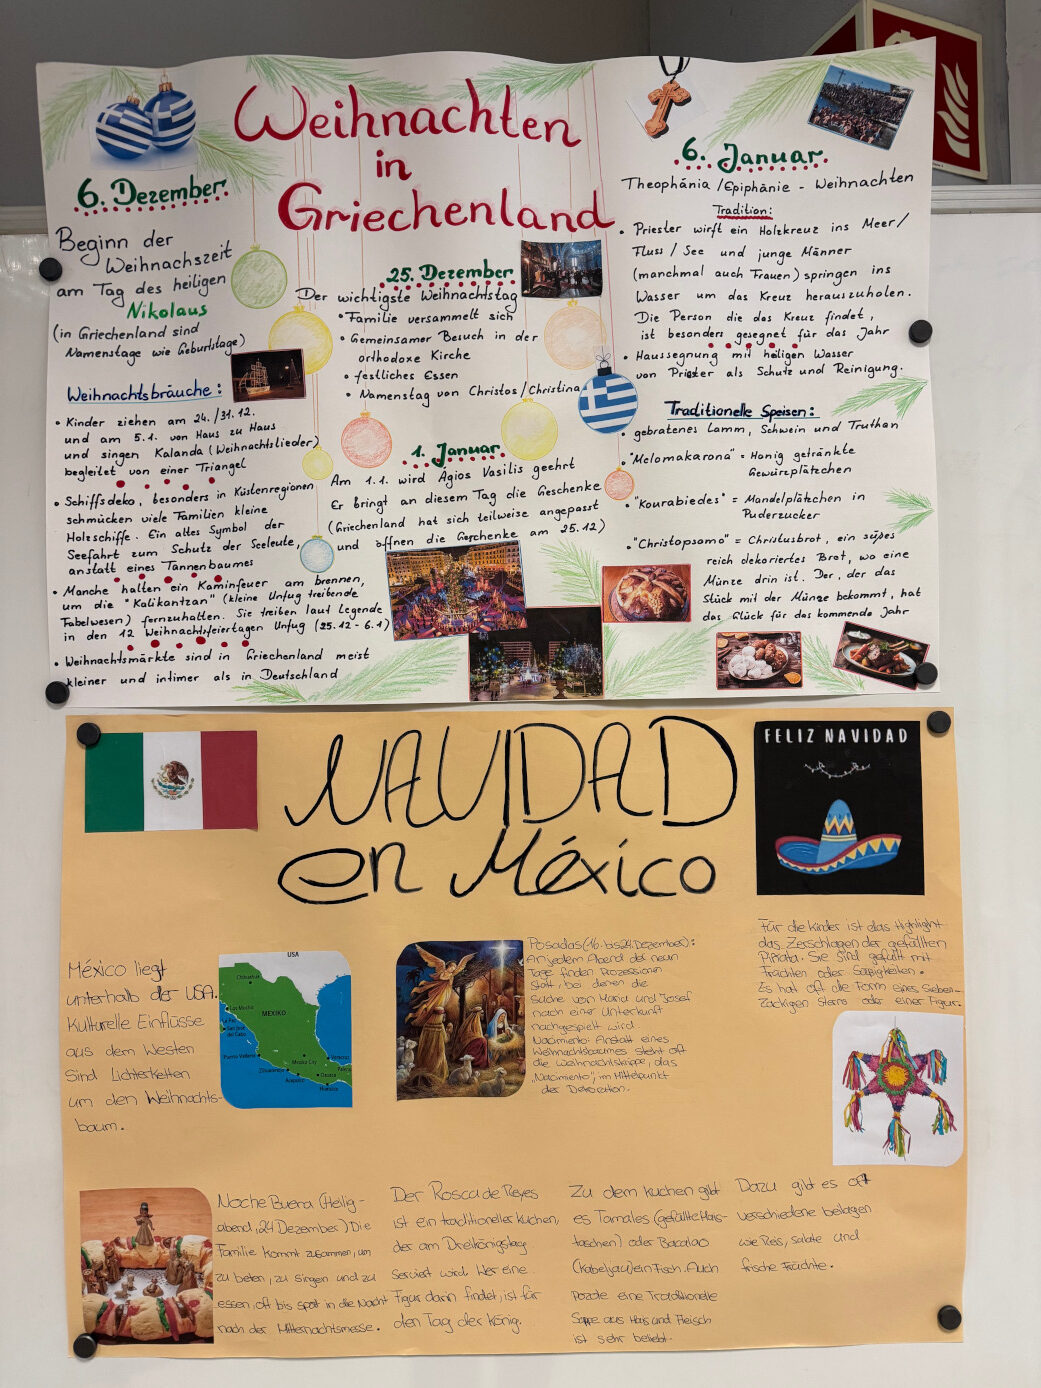 Weihnachten
in
Griechenland
6. Dezember
Beginn der
Weihnachszeit
am Tag des heiligen
Nikolaus
(in Griechenland sind
Namenstage wie Geburtstage)
Weihnachtsbräuche:
• Kinder ziehen am 24./31.12.
und am 5.1. von Haus zu Haus
und singen Kalanda (Weihnachtslieder)
begleitet von einer Triangel
• Schiffsdeko, besonders in Küstenregionen
schmücken viele Familien kleine
Holzschiffe. Ein altes Symbol der
Seefahrt zum Schutz der Seeleute,
anstatt eines Tannenbaumes
• Manche halten ein Kaminfeuer am brennen,
um die "Kalikantzan" (kleine Unfug treibende
Fabelwesen) fernzuhalten. Sie treiben laut Legende
in den 12 Weihnachtsfeiertagen Unfug (25.12 - 6.1)
• Weihnachtsmärkte sind in Griechenland meist
kleiner und intimer als in Deutschland
25. Dezember
Der wichtigste Weihnachtstag
• Familie versammelt sich
• Gemeinsamer Besuch in der
orthodoxe Kirche
• festliches Essen
• Namenstag von Christos/Christina
1. Januar
Am 1.1. wird Agios Vasilis geehrt
Er bringt an diesem Tag die Geschenke
(Griechenland hat sich teilweise angepasst
und öffnen die Geschenke am 25.12)
6. Januar
Theophánia/Epiphänie - Weihnachten
Tradition:
• Priester wirft ein Holzkreuz ins Meer/
Fluss/See und junge Männer
(manchmal auch Frauen) springen ins
Wasser um das Kreuz herauszuholen.
Die Person die das Kreuz findet,
ist besonders gesegnet für das Jahr
• Haussegnung mit heiligen Wasser
von Priester als Schutz und Reinigung.
Traditionelle Speisen:
• gebratenes Lamm, Schwein und Truthan
• "Melomakarona" = Honig getränkte
Gewürzplätzchen
• "Kourabiedes" = Mandelplätzchen in
Puderzucker
• "Christopsomo" = Christusbrot, ein süßes
reich dekoriertes Brot, wo eine
Münze drin ist. Der, der das
Stück mit der Münze bekommt, hat
das Glück für das kommende Jahr
NAVIDAD
en México
FELIZ NAVIDAD
México liegt
unterhalb der USA.
Kulturelle Einflüsse
aus dem Westen
sind Lichterketten
um den Weihnachts-
baum.
USA
Chihuahua
Los Mochis
MEXIKO
La Paz
San José
del Cabo
Puerto Vallarta
Mexico City
Veracruz
Zihuatanejo
Acapulco
Oaxaca
Huatulco
Posadas (16. bis 24. Dezember):
An jedem Abend der neun
Tage finden Prozessionen
statt, bei denen die
Suche von Maria und Josef
nach einer Unterkunft
nachgespielt wird.
Nacimiento: Anstatt eines
Weihnachtsbaumes steht oft
die Weihnachtskrippe, das
"Nacimiento", im Mittelpunkt
der Dekoration.
Für die Kinder ist das Highlight
das Zerschlagen der gefüllten
Piñata. Sie sind gefüllt mit
Früchten oder Süßigkeiten.
Es hat oft die Form eines sieben-
zackigen Sterns oder einer Figur.
Noche Buena (Heilig-
abend, 24 Dezember) Die
Familie kommt zusammen, um
zu beten, zu singen und zu
essen, oft bis spät in die Nacht
nach der Mitternachtsmesse.
Der Rosca de Reyes
ist ein traditioneller Kuchen,
der am Dreikönigstag
serviert wird. Wer eine
Figur darin findet, ist für
den Tag der König.
Zu dem Kuchen gibt
es Tamales (gefüllte Mais-
taschen) oder Bacalao
(Kabeljau) ein Fisch. Auch
Pozole eine Traditionelle
Suppe aus Mais und Fleisch
ist sehr beliebt.
Dazu gibt es oft
verschiedene beilagen
wie Reis, salate und
frische Früchte.